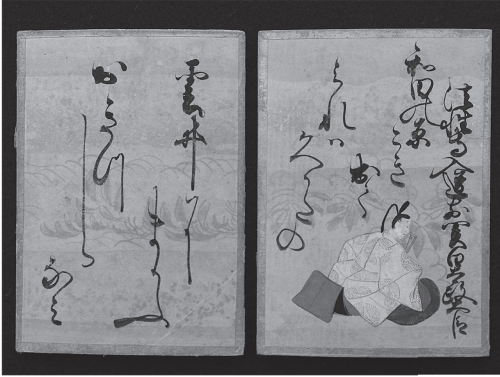 法性寺入道前関白太政
和田の原
こき
出て
みれハ
久かたの
雲井に
まかふ
おきつ
しら
なみ